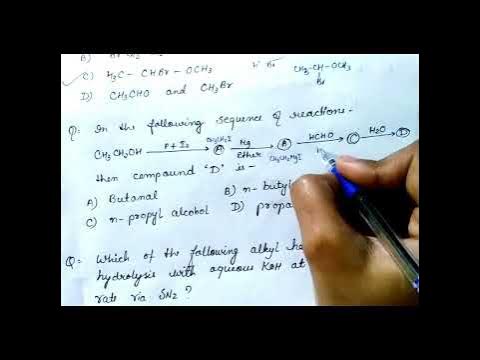 B) Br
C) H₃C - CHBr - OCH₃
CH₃-CH-OCH₃
Br
D) CH₃CHO and CH₃Br
Q: In the following sequence of reactions -
CH₃CH₂OH P+I₂ → (A) CH₃CH₂I Mg → Ether (B) CH₃CH₂MgI HCHO → (C) H₂O → (D)
then compound "D" is -
A) Butanal B) n-butyl
C) n-propyl alcohol D) propa
Q: Which of the following alkyl ha
hydrolysis with aqueous KOH at
rate via SN2 ?